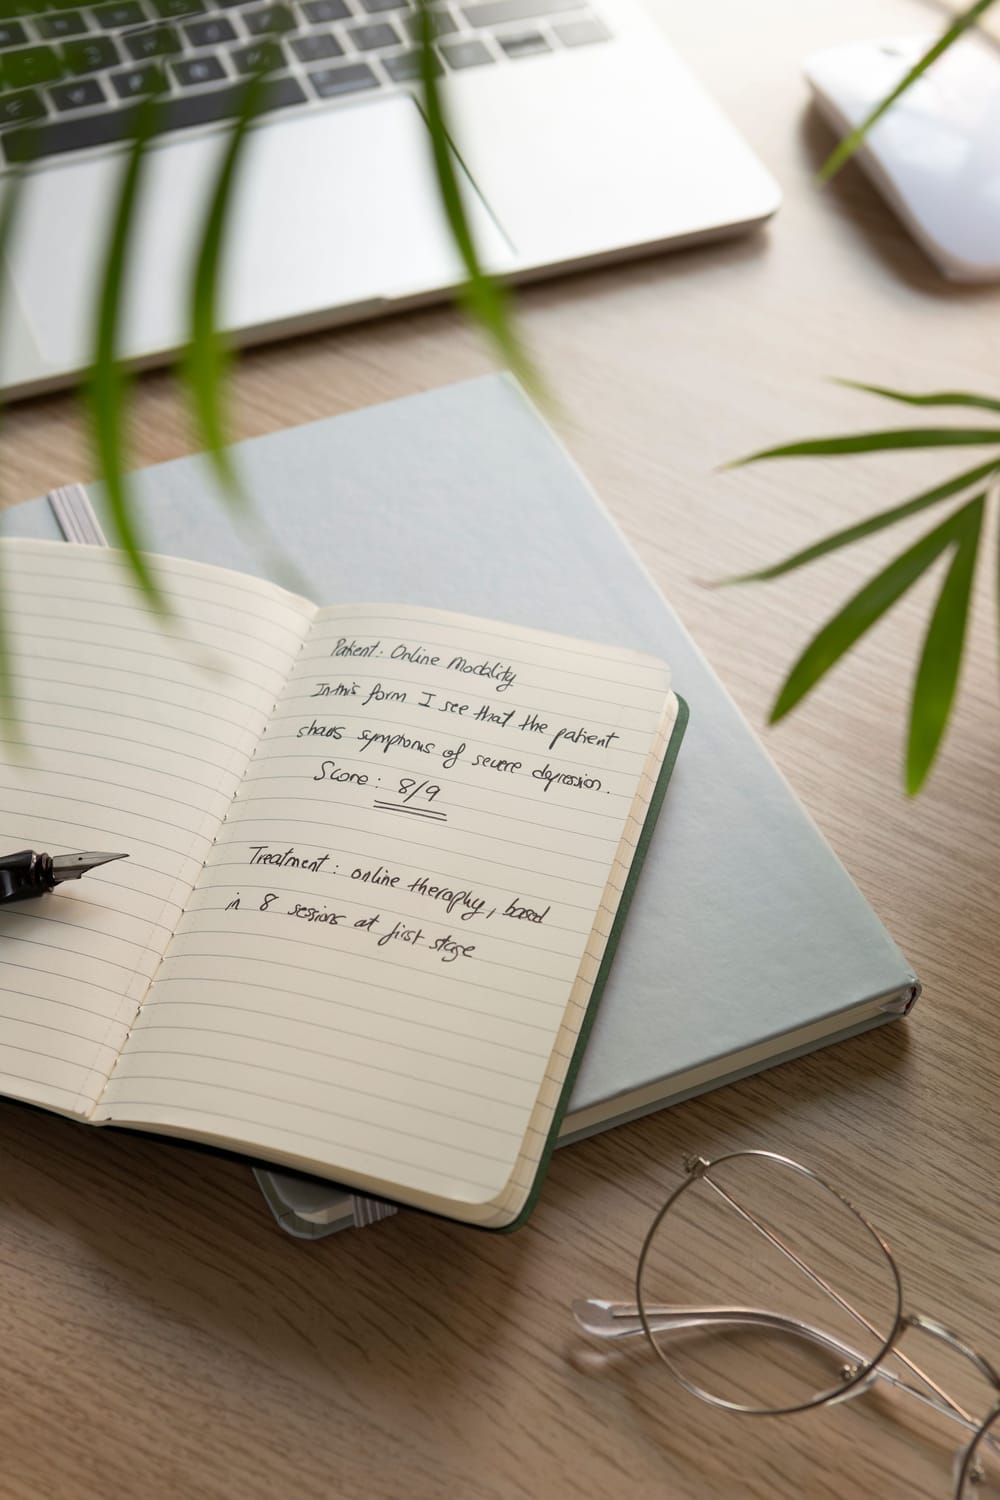 Patient: Online Modality
In this form I see that the patient
shows symptoms of severe depression.
Score: 8/9
Treatment: online theraphy, based
in 8 sessions at first stage